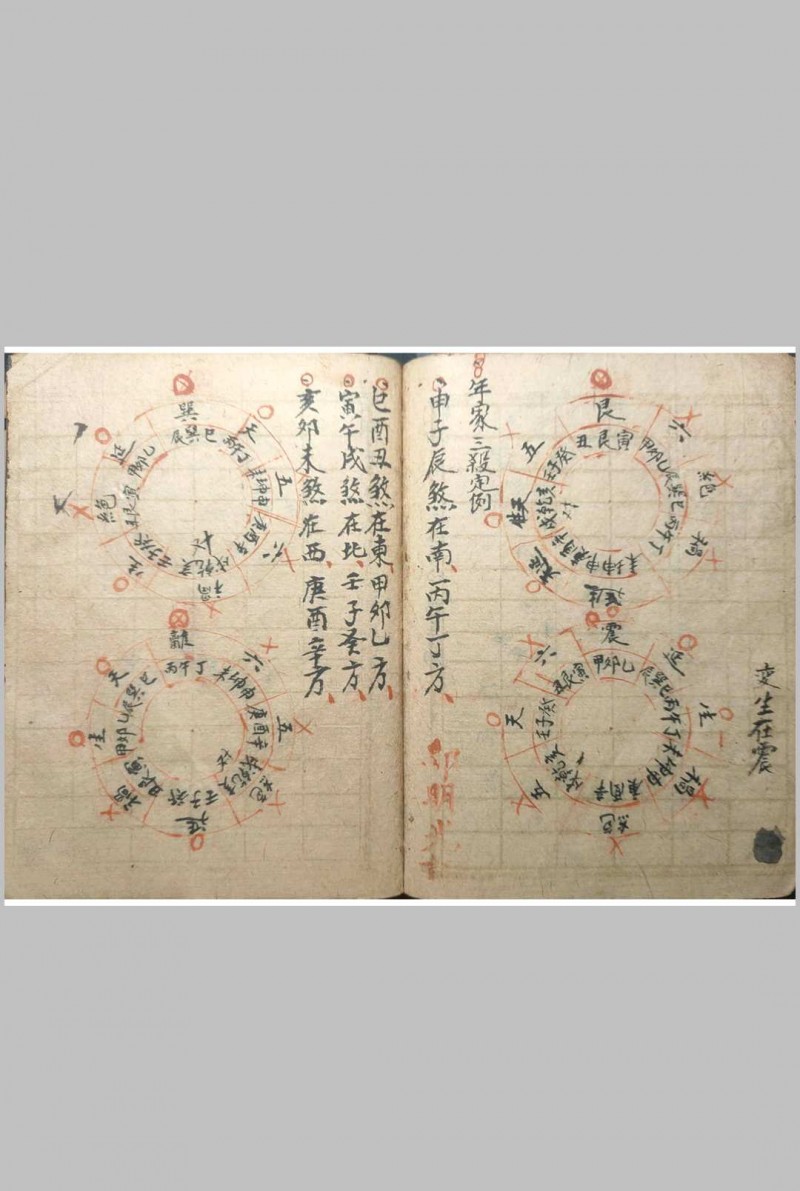 变生在震
艮
六
絕
禍
生
延
天
五
丑艮寅
甲卯乙
辰巽巳
丙午丁
未坤申
庚酉辛
戌乾亥
壬子癸
震
延
生
禍
絕
五
天
六
甲卯乙
辰巽巳
丙午丁
未坤申
庚酉辛
戌乾亥
壬子癸
丑艮寅
年家三殺定例
申子辰煞在南、丙午丁方、
巳酉丑煞在東、甲卯乙方、
寅午戌煞在北、壬子癸方、
亥卯未煞在西、庚酉辛方、
巽
天
五
六
禍
生
絕
延
辰巽巳
丙午丁
未坤申
庚酉辛
戌乾亥
壬子癸
丑艮寅
甲卯乙
離
六
五
絕
延
禍
生
天
丙午丁
未坤申
庚酉辛
戌乾亥
壬子癸
丑艮寅
甲卯乙
辰巽巳